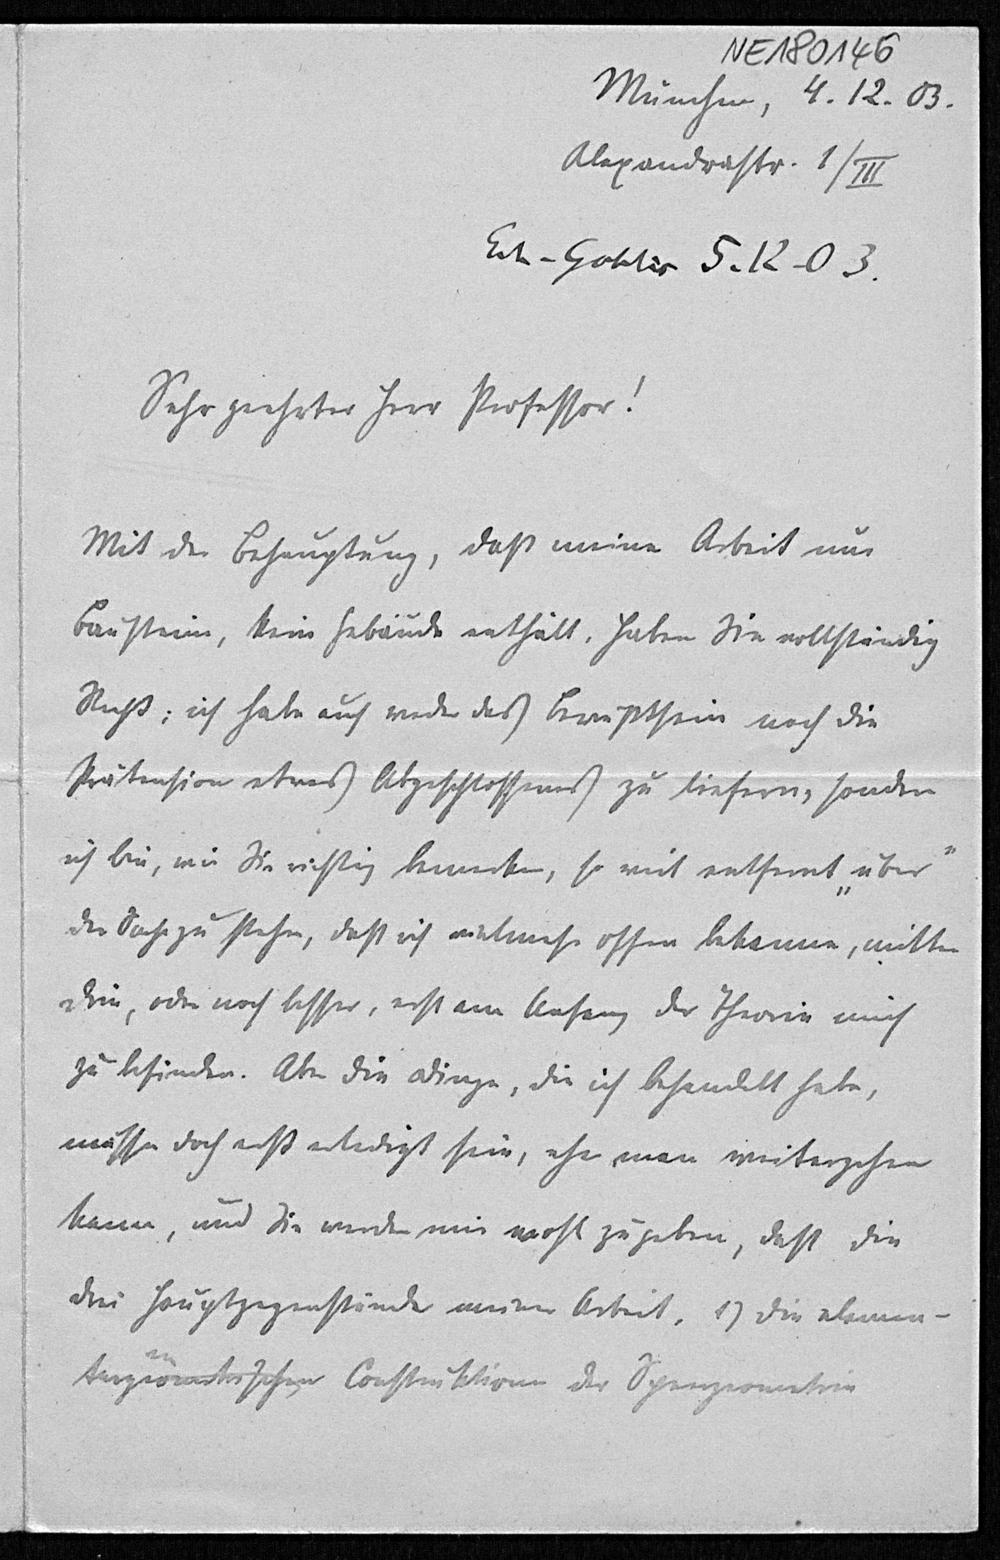 NE180146
München, 4.12.03.
Alexandrastr. 1/III
5.12-03.
Sehr geehrter Herr Professor!
Mit der Behauptung, daß meine Arbeit nur
Bausteine, kein Gebäude enthält, haben Sie vollständig
Recht; ich habe auch weder das Bewußtsein noch die
Prätension etwas Abgeschlossenes zu liefern, sondern
ich bin, wie Sie richtig bemerken, so weit entfernt „über"
der Sache zu stehen, daß ich vielmehr offen bekenne, mitten
drin, oder noch besser, erst am Anfang der Theorie mich
zu befinden. Aber die Dinge, die ich behandelt habe,
müssen doch erst erledigt sein, ehe man weitergehen
kann, und Sie werden mir wohl zugeben, daß die
drei Hauptgegenstände meiner Arbeit, 1) die elemen-
Construktionen der